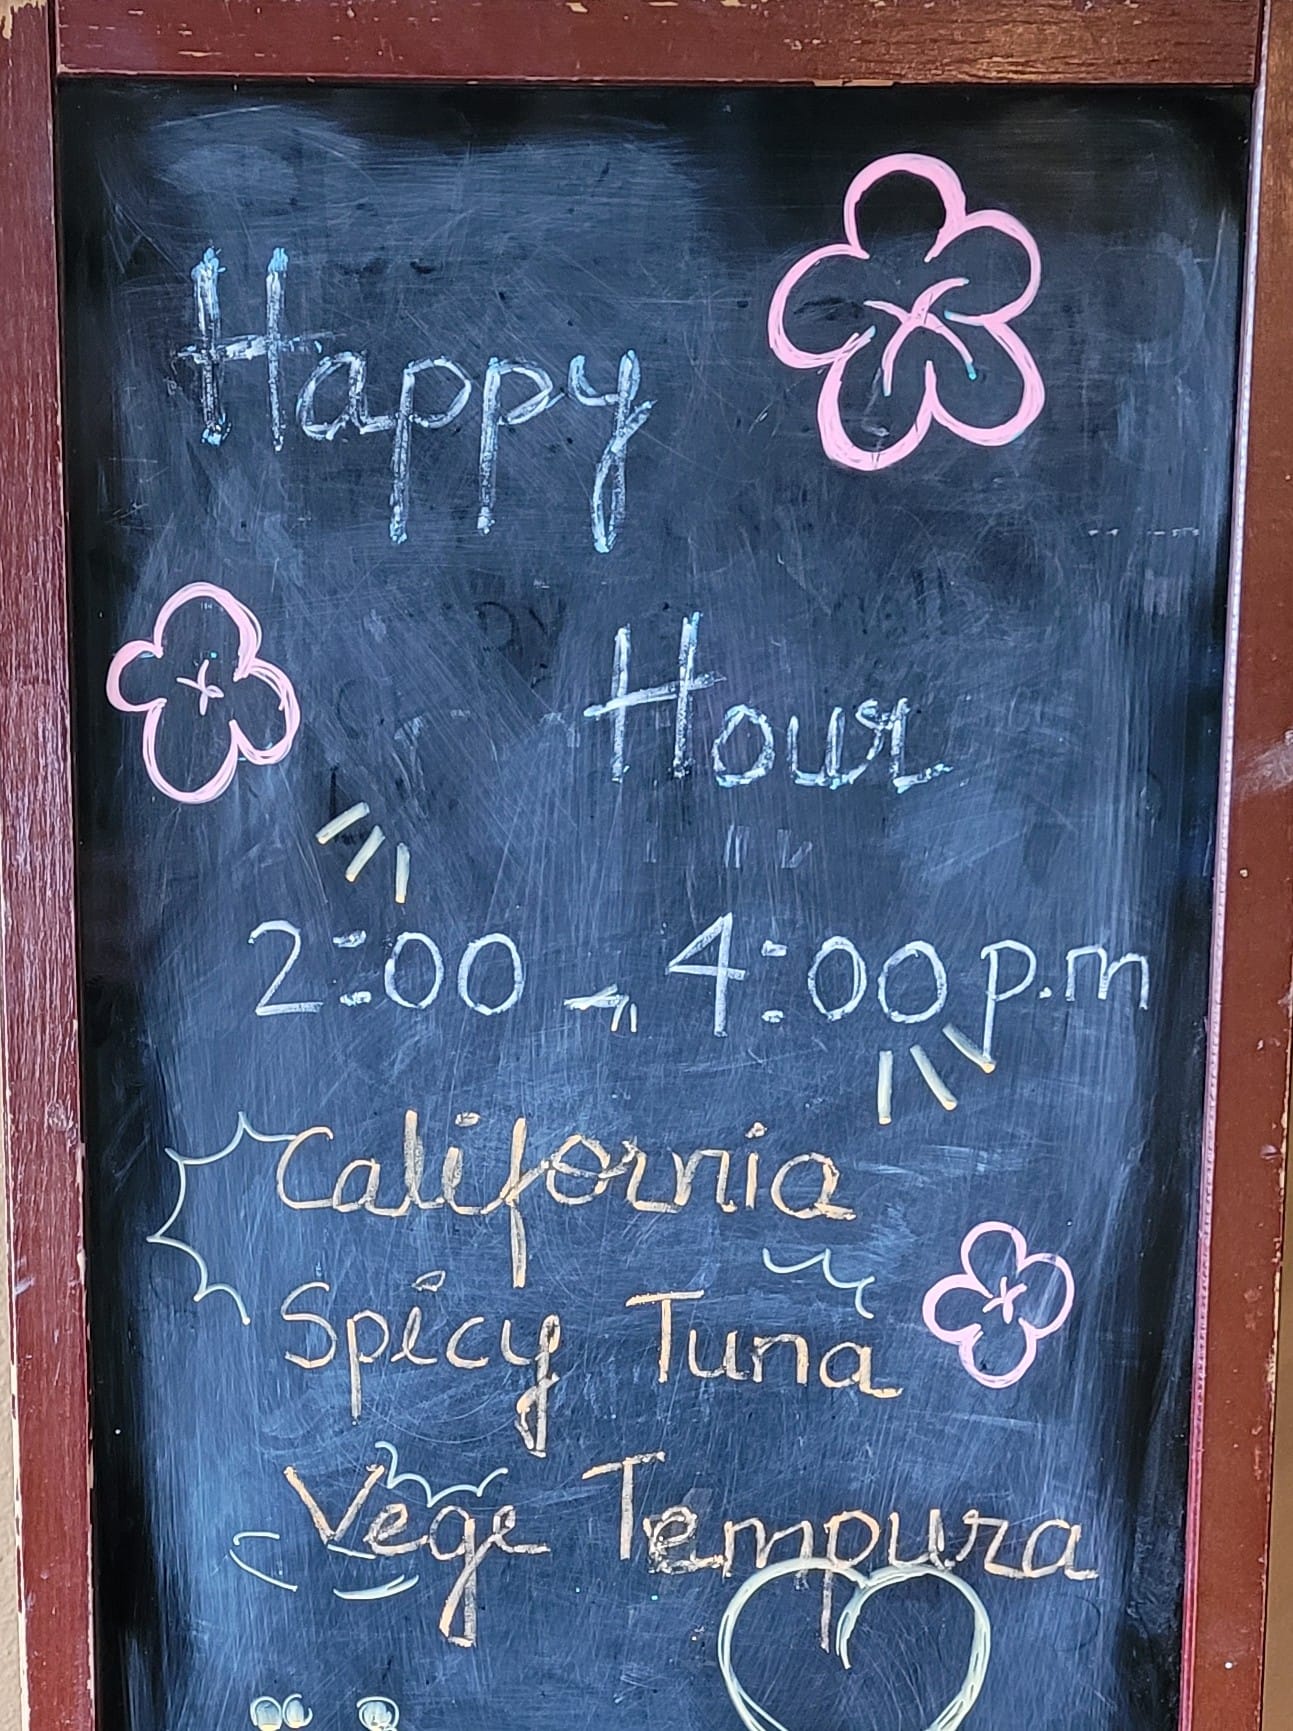 Happy
Hour
2:00 - 4:00 p.m
California
Spicy Tuna
Vege Tempura